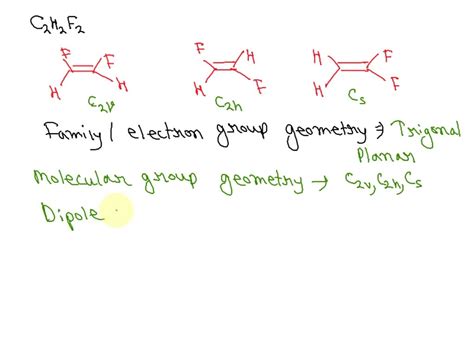 C₂H₂F₂
F F H H
C₂ᵥ
F H H F
C₂ₕ
H F H F
Cₛ
Family / electron group geometry ⇒ Trigonal
Planar
Molecular group geometry → C₂ᵥ, C₂ₕ, Cₛ
Dipole